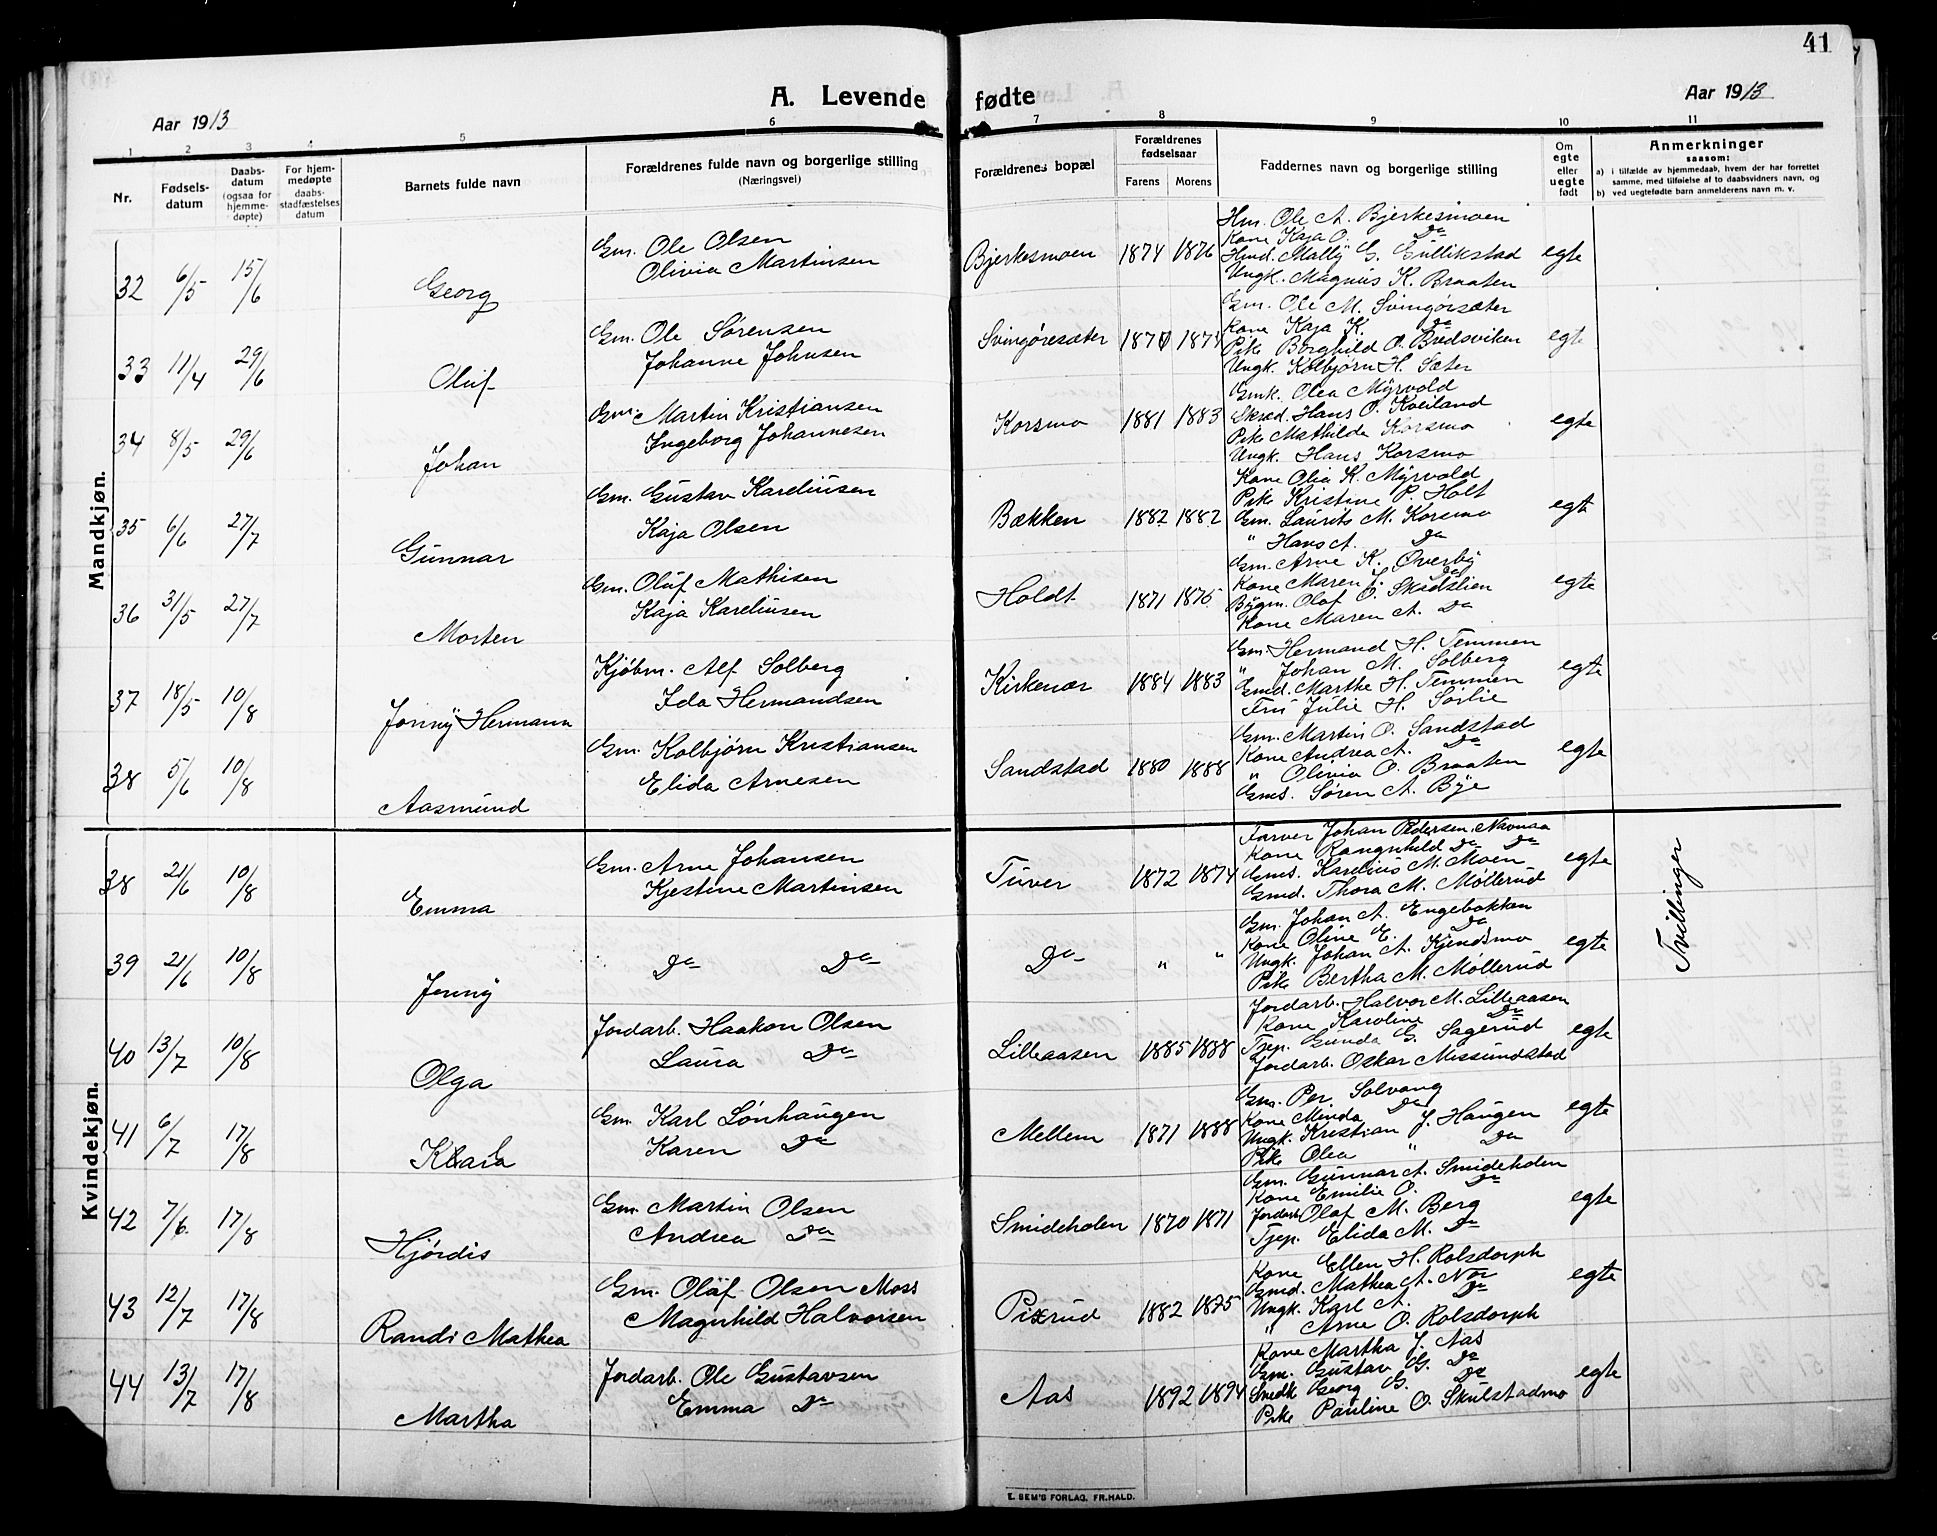 41
A. Levende fødte
Aar 1913
Aar 1913
1 2 3 4 5 6 7 8 9 10 11
Nr.
Fødsels-datum
Daabs-datum (ogsaa for hjemme-døpte)
For hjem-medøpte daabs-stadfæstelses datum
Barnets fulde navn
Forældrenes fulde navn og borgerlige stilling
(Næringsvei)
Forældrenes bopæl
Forældrenes fødselsaar
Farens Morens
Faddernes navn og borgerlige stilling
Om egte eller uegte født
Anmerkninger
saasom:
a) i tilfælde av hjemmedaab, hvem der har forrettet samme, med tilføielse af to daabsvidners navn, og
b) ved uegtefødte barn anmelderens navn m. v.
Mandkjøn.
32 6/5 15/6 Georg
Gm. Ole Olsen
Olivia Martinsen
Bjerkesmoen 1874 1876
Hm. Ole A. Bjerkesmoen
Kone Kaja O. Do
Hmd. Mally G. Gullikstad
Ungk. Magnus K. Braaten
egte
33 11/4 29/6 Oluf
Gm. Ole Sørensen
Johanne Johnsen
Svingøresæter 1874
Gm. Ole M. Svingørsæter
Kone Kaja K. Do
Pike Borghild O. Bredsviken
Ungk. Kolbjørn H. Sæter
egte
34 8/5 29/6 Johan
Gm. Martin Kristiansen
Ingeborg Johannesen
Korsmo 1881 1883
Gmk. Olea Myrvold
Skræd. Hans O. Kveiland
Pike Mathilde Korsmo
Ungk. Hans Korsmo
egte
35 6/6 27/7 Gunnar
Gm. Gustav Kareliusen
Kaja Olsen
Bækken 1882 1882
Kone Olia K. Myrvold
Pike Kristine P. Holt
Gm. Laurits M. Korsmo
" Hans A. Do
egte
36 31/5 27/7 Morten
Gm. Oluf Mathisen
Kaja Kareliusen
Holdt 1871 1875
Gm. Arne K. Overby
Kone Maren J. Do
Bygm. Olaf O. Skadslien
Kone Maren A. Do
egte
37 18/5 10/8 Jonny Hermann
Kjøbm. Alf Solberg
Ida Hermandsen
Kirkenær 1884 1883
Gm. Hermand H. Temmen
" Johan M. Solberg
Gmd. Marthe H. Temmen
Fru Julie H. Sørlie
egte
38 5/6 10/8 Aasmund
Gm. Kolbjørn Kristiansen
Elida Arnesen
Sandstad 1880 1888
Gm. Martin O. Sandstad
Kone Andrea A. Do
" Olivia O. Braaten
Gms. Søren A. Bye
egte
Kvindekjøn.
38 21/6 10/8 Emma
Gm. Arne Johansen
Kjestine Martinsen
Tuver 1872 1874
Farver Johan Pedersen, Navnaa
Kone Rangnhild Do Do
Gms. Karelius M. Moen
Gmd. Thora M. Møllerud
egte
Tvillinger
39 21/6 10/8 Jenny
Do Do
Do " "
Gm. Johan A. Engebakken
Kone Oline E. Do
Ungk. Johan A. Kjendsmo
Pike Bertha M. Møllerud
egte
40 13/7 10/8 Olga
Jordarb. Haakon Olsen
Laura Do
Lilleaasen 1885 1888
Jordarb. Halvor M. Lilleaasen
Kone Karoline Do
Tjep. Gunda G. Sagerud
Jordarb. Oskar Missundstad
egte
41 6/7 17/8 Klara
Gm. Karl Lønhaugen
Karen Do
Mellem 1871 1888
Gm. Per Solvang
Kone Minda Do
Ungk. Kristian J. Haugen
Pike Olea " Do
egte
42 7/6. 17/8 Hjørdis
Gm. Martin Olsen
Andrea Do
Smideholen 1870 1871
Gm. Gunnar A. Smideholen
Kone Emilie O. Do
Jordarb. Olaf M. Berg
Tjep. Elida M. Do
egte
43 12/7 17/8 Randi Mathea
Gm. Olaf Olsen Moss
Magnhild Halvorsen
Pixrud 1882 1875
Kone Ellen H. Rolsdorph
Gmd. Mathea A. Nor
Ungk. Karl A. Do
" Arne O. Rolsdorph
egte
44 13/7 17/8 Martha
Jordarb. Ole Gustavsen
Emma Do
Aas 1892 1894
Kone Martha J. Aas
Gm. Gustav G. Do
Smedk Georg G. Do
Pike Pauline O. Skulstadmo
egte
E. SEM'S FORLAG, FR.HALD.